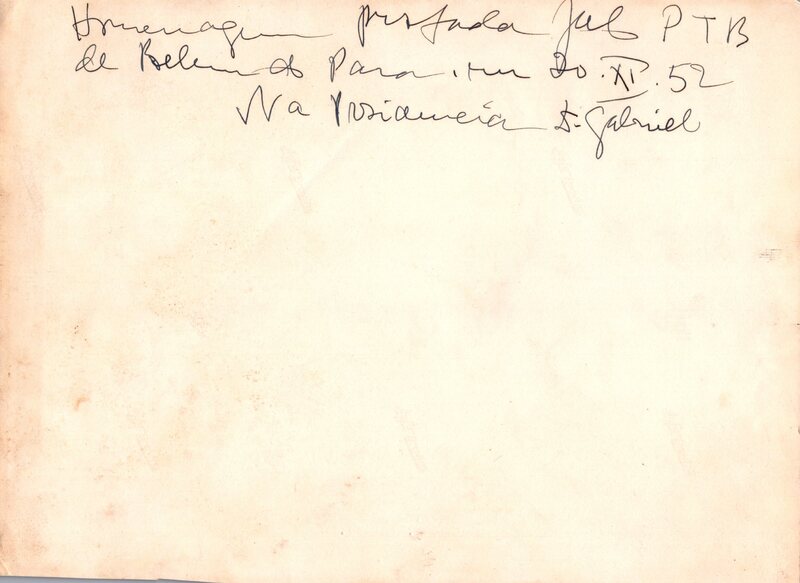 Homenagem prestada pelo PTB
de Belem do Para, em 20.XI.52
Na Presidencia D. Gabriel